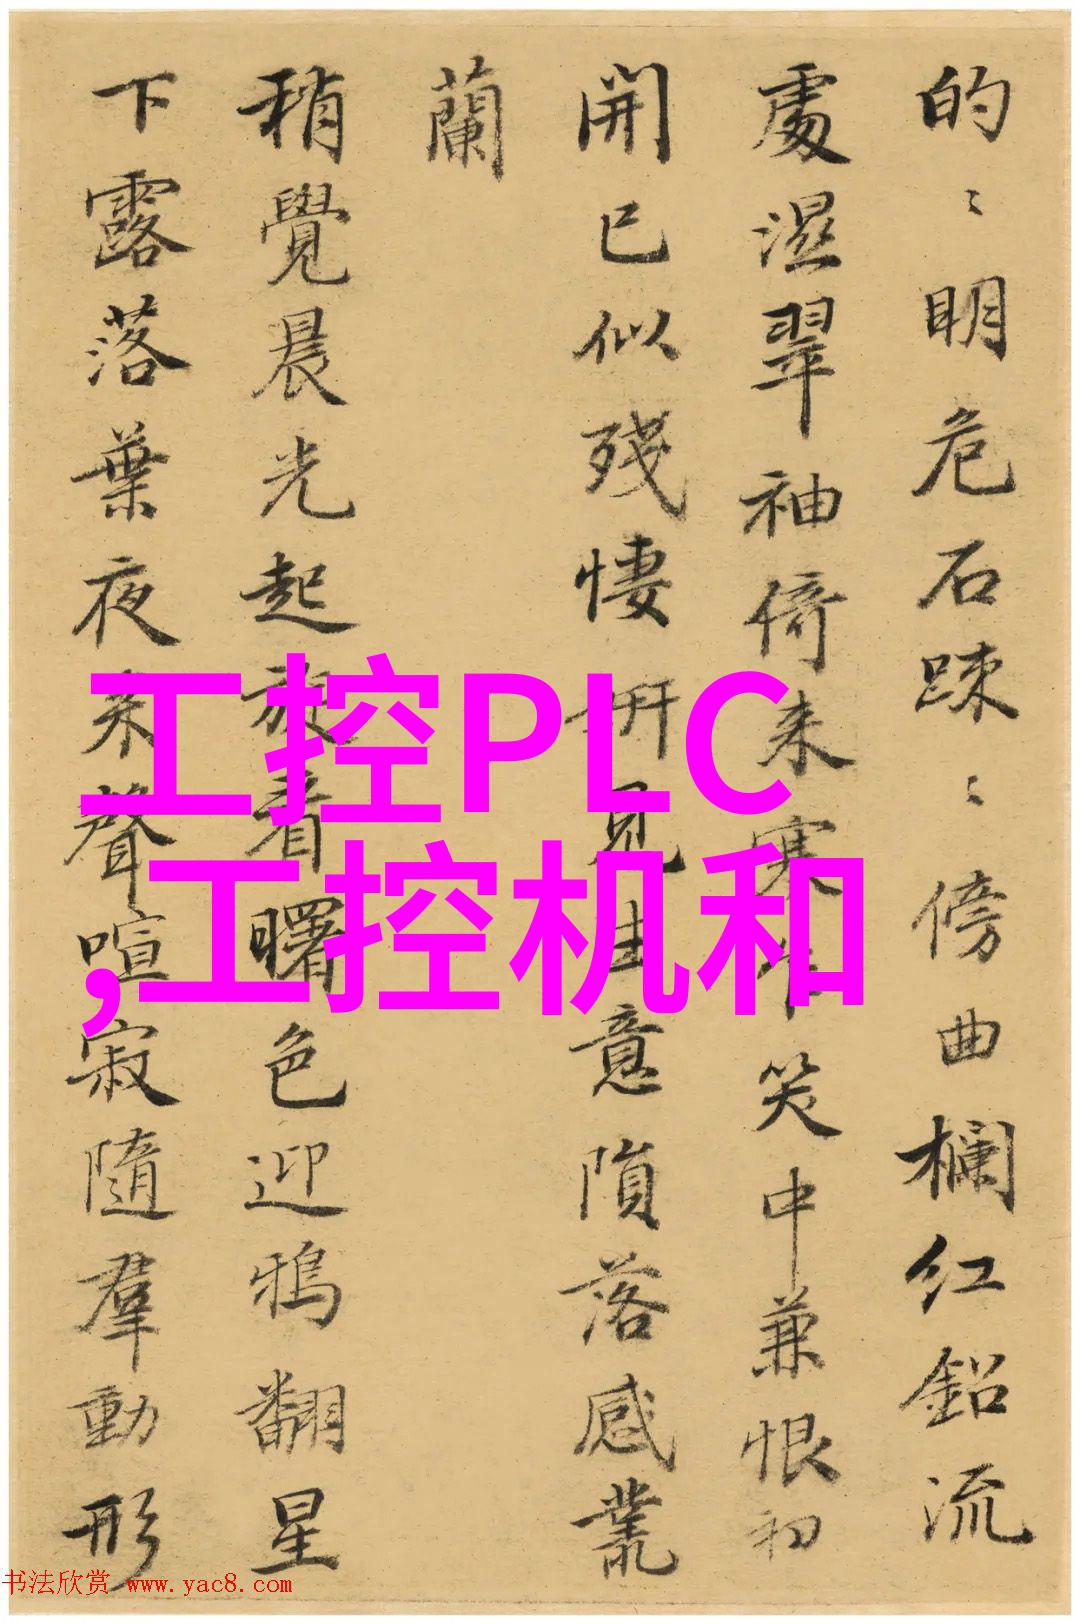 的〻明危石踈〻傍曲欄红鉛流
處濕翠袖倚来寒 笑中兼恨初
開已似殘悽妍見生意隕落感叢
蘭
稍覺晨光起旋看曙色迎鴉翻星
下露落葉夜来聲喧寂隨羣動形
工控PLC
,工控机和
书法欣赏 www.yac8.com